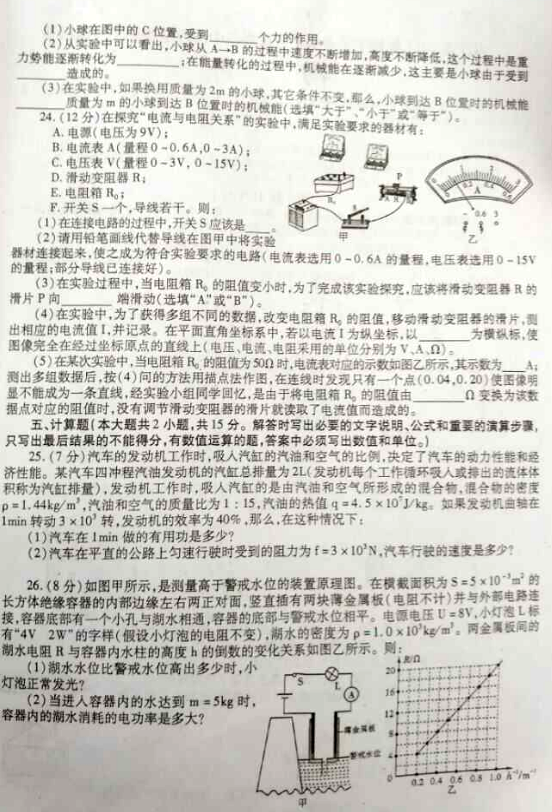 (1)小球在图中的C位置,受到____个力的作用。
(2)从实验中可以看出,小球从A→B的过程中速度不断增加,高度不断降低,这个过程中是重
力势能逐渐转化为____;在能量转化的过程中,机械能在逐渐减少,这主要是小球由于受到
____造成的。
(3)在实验中,如果换用质量为2m的小球,其它条件不变,那么,小球到达B位置时的机械能
____质量为m的小球到达B位置时的机械能(选填“大于”、“小于”或“等于”)。
24.(12分)在探究“电流与电阻关系”的实验中,满足实验要求的器材有:
A.电源(电压为9V);
B.电流表A(量程0~0.6A,0~3A);
C.电压表V(量程0~3V,0~15V);
D.滑动变阻器R;
E.电阻箱R₀;
F.开关S一个,导线若干。则:
(1)在连接电路的过程中,开关S应该是____。
(2)请用铅笔画线代替导线在图甲中将实验
器材连接起来,使之成为符合实验要求的电路(电流表选用0~0.6A的量程,电压表选用0~15V
的量程;部分导线已连接好)。
R₀
S
P
A
B
甲
- 0.6 3
乙
(3)在实验过程中,当电阻箱R₀的阻值变小时,为了完成该实验探究,应该将滑动变阻器R的
滑片P向____端滑动(选填“A”或“B”)。
(4)在实验中,为了获得多组不同的数据,改变电阻箱R₀的阻值,移动滑动变阻器的滑片,测
出相应的电流值I,并记录。在平面直角坐标系中,若以电流I为纵坐标,以____为横纵标,使
图像完全在经过坐标原点的直线上(电压、电流、电阻采用的单位分别为V、A、Ω)。
(5)在某次实验中,当电阻箱R₀的阻值为50Ω时,电流表对应的示数如图乙所示,其示数为____A;
测出多组数据后,按(4)问的方法用描点法作图,在连线时发现只有一个点(0.04,0.20)使图像明
显不能成为一条直线,经实验小组同学回忆,是由于将电阻箱R₀的阻值由____Ω变换为该数
据点对应的阻值时,没有调节滑动变阻器的滑片就读取了电流值而造成的。
五、计算题(本大题共2小题,共15分。解答时写出必要的文字说明、公式和重要的演算步骤,
只写出最后结果的不能得分,有数值运算的题,答案中必须写出数值和单位。)
25.(7分)汽车的发动机工作时,吸入气缸的汽油和空气的比例,决定了汽车的动力性能和经
济性能。某汽车四冲程汽油发动机的汽缸总排量为2L(发动机每个工作循环吸入或排出的流体体
积称为汽缸排量),发动机工作时,吸入气缸的是由汽油和空气所形成的混合物,混合物的密度
ρ=1.44kg/m³,汽油和空气的质量比为1:15,汽油的热值q=4.5×10⁷J/kg。如果发动机曲轴在
1min转动3×10³转,发动机的效率为40%,那么,在这种情况下:
(1)汽车在1min做的有用功是多少?
(2)汽车在平直的公路上匀速行驶时受到的阻力为f=3×10³N,汽车行驶的速度是多少?
26.(8分)如图甲所示,是测量高于警戒水位的装置原理图。在横截面积为S=5×10⁻³m²的
长方体绝缘容器的内部边缘左右两正对面,竖直插有两块薄金属板(电阻不计)并与外部电路连
接,容器底部有一个小孔与湖水相通,容器的底部与警戒水位相平。电源电压U=8V,小灯泡L标
有“4V 2W”的字样(假设小灯泡的电阻不变),湖水的密度为ρ=1.0×10³kg/m³。两金属板间的
湖水电阻R与容器内水柱的高度h的倒数的变化关系如图乙所示。则:
(1)湖水水位比警戒水位高出多少时,小
灯泡正常发光?
(2)当进入容器内的水达到m=5kg时,
容器内的湖水消耗的电功率是多大?
S
L
A
薄金属板
警戒水位
甲
R/Ω
20
16
12
8
4
0
0.2 0.4 0.6 0.8 1.0 h⁻¹/m⁻¹
乙